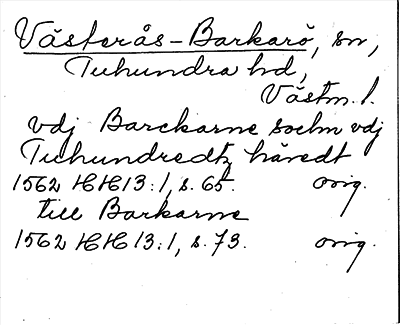 Västerås-Barkarö, sn,
Tuhundra hd,
Västm. l.
vdj Barckarne sochn vdj
Tuhundredtz häredt
1562 HH13:1, s. 65. orig.
till Barkarne
1562 HH13:1, s. 73. orig.